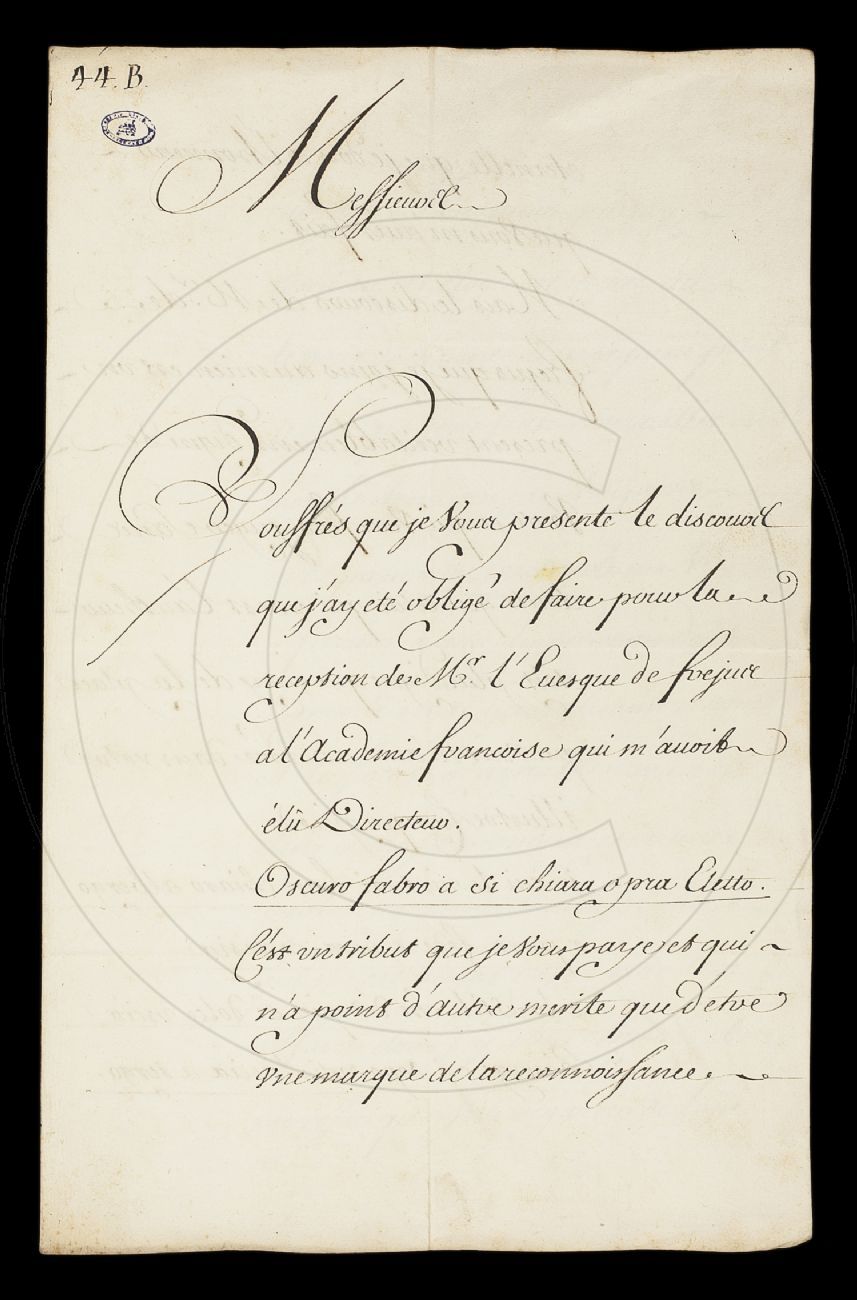 44. B.
Messieurs
Souffrés que je Vous presente le discours
que j'ay eté obligé de faire pour la
reception de Mr. l'Euesque de frejus
a l'Academie francoise qui m'auoit
élû Directeur.
Oscuro fabro a si chiara opra Eletto.
C'est vn tribut que je Vous paye et qui
n'a point d'autre merite que d'être
vne marque de la reconnoissance